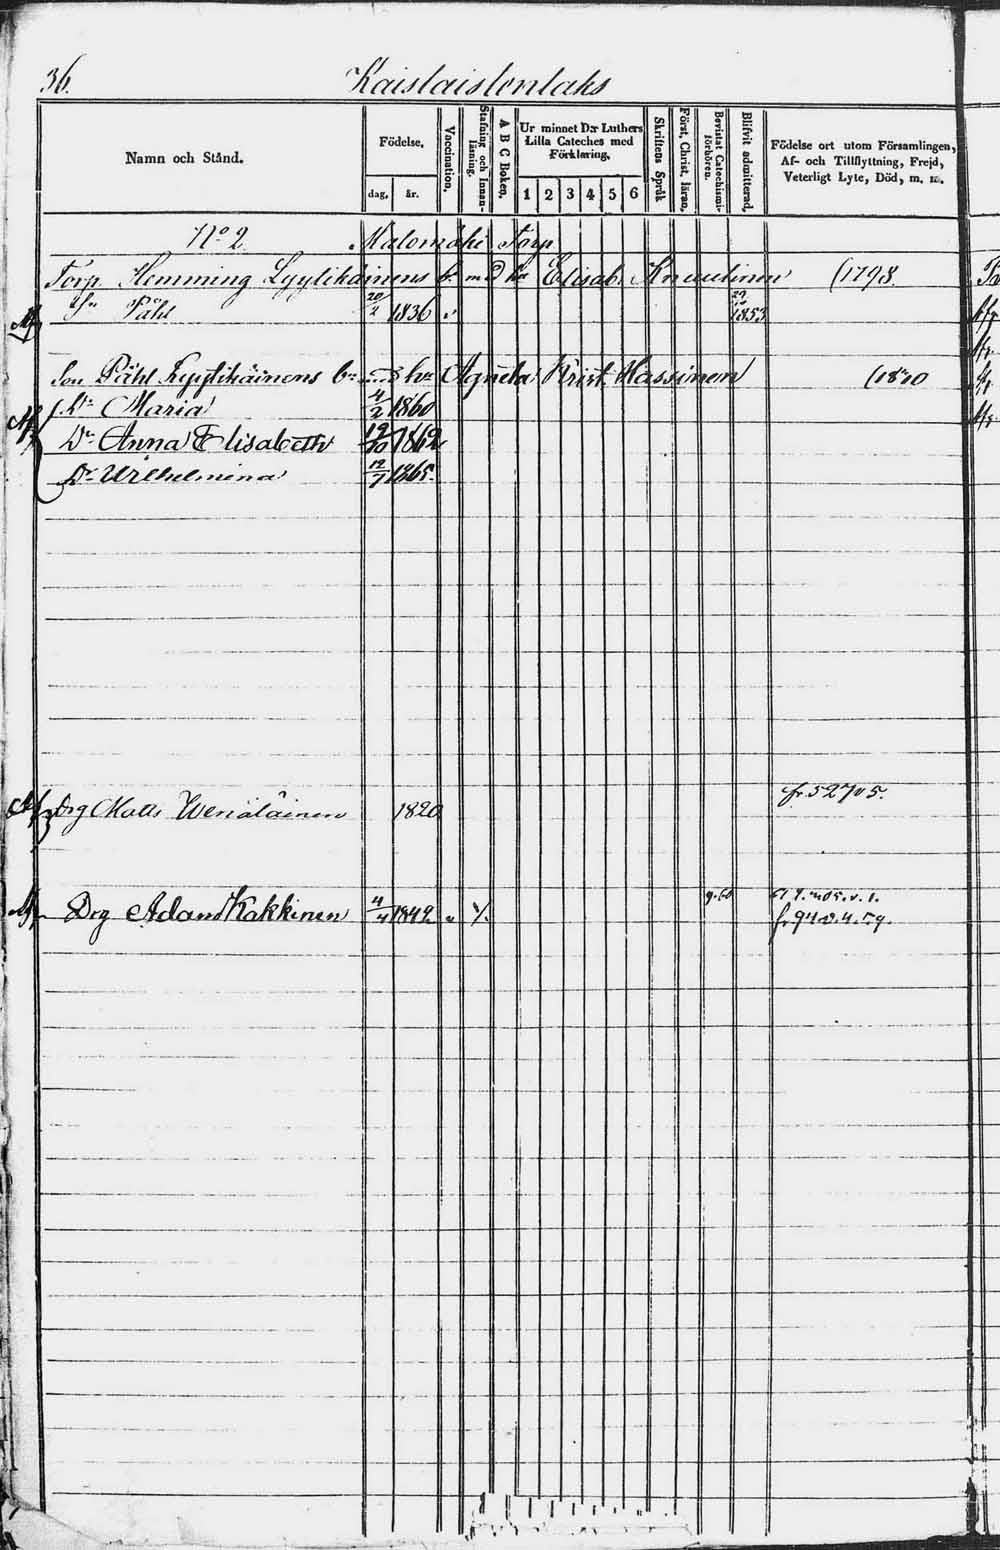 36.
Kaislaistenlaks
Namn och Stånd.
Födelse.
dag.
år.
Vaccination.
Stafning och Innan-
läsning.
A B C Boken.
Ur minnet D:r Luthers
Lilla Cateches med
Förklaring.
1 2 3 4 5 6
Skriftens Språk
Först. Christ. läran.
Bevistat Catechismi-
förhören.
Blifvit admitterad.
Födelse ort utom Församlingen,
Af- och Tillflyttning, Frejd,
Veterligt Lyte, Död, m. m.
No 2 Malomäki Torp
Torp. Hemming Lyytikäinens Elisab. (1798
Påhl 20/2 1836 1853
Son Påhl Lyytikäinens Agneta Krist. Hassinen
Dr Maria 4/2 1860
Dr Anna Elisabeth 19/10 1862
Dr Wilhelmina 12/7 1865.
Drg Matts Wenäläinen 1820
Drg Adam Kakkinen 4/4 1842